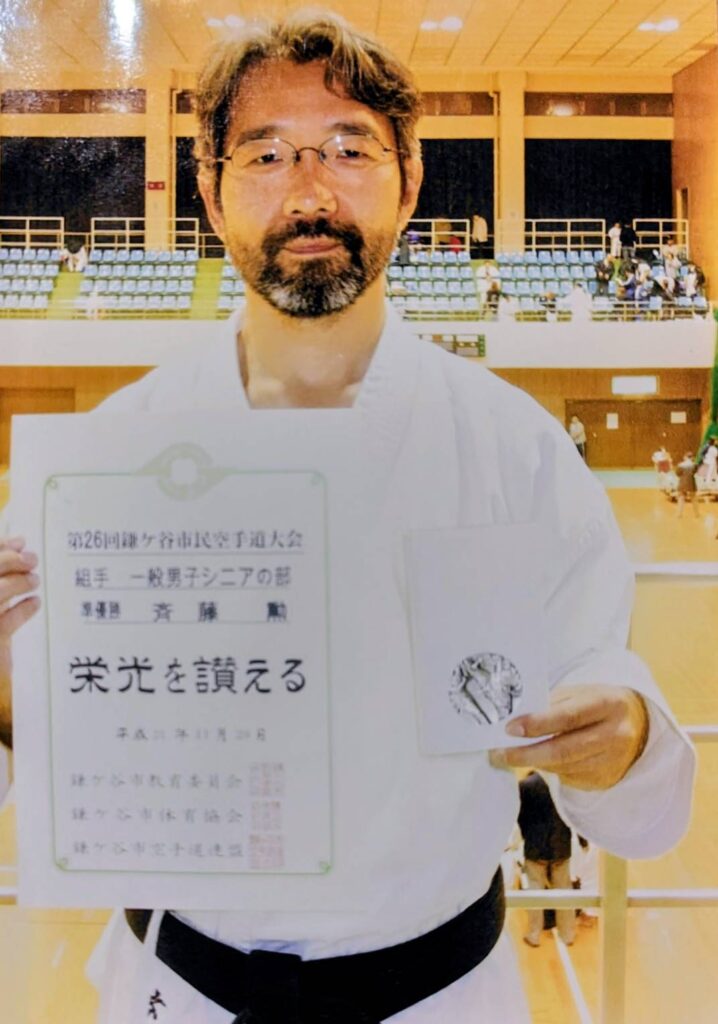 第26回鎌ケ谷市民空手道大会
組手 一般男子シニアの部
準優勝 斉藤 勲
栄光を讃える
平成21年11月
鎌ケ谷市教育委員会
鎌ケ谷市体育協会
鎌ケ谷市空手道連盟